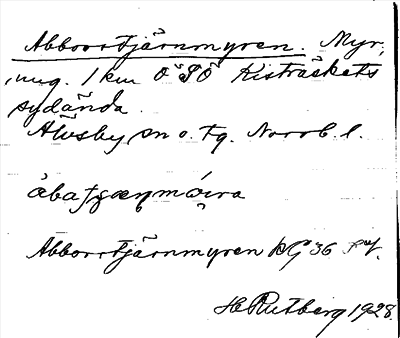 Abborrtjärnmyren. Myr,
ung. 1 km O SO Kisträskets
sydända.
Älvsby sn o. tg. Norrb. l.
Abborrtjärnmyren kG 36
H Rutberg 1928.